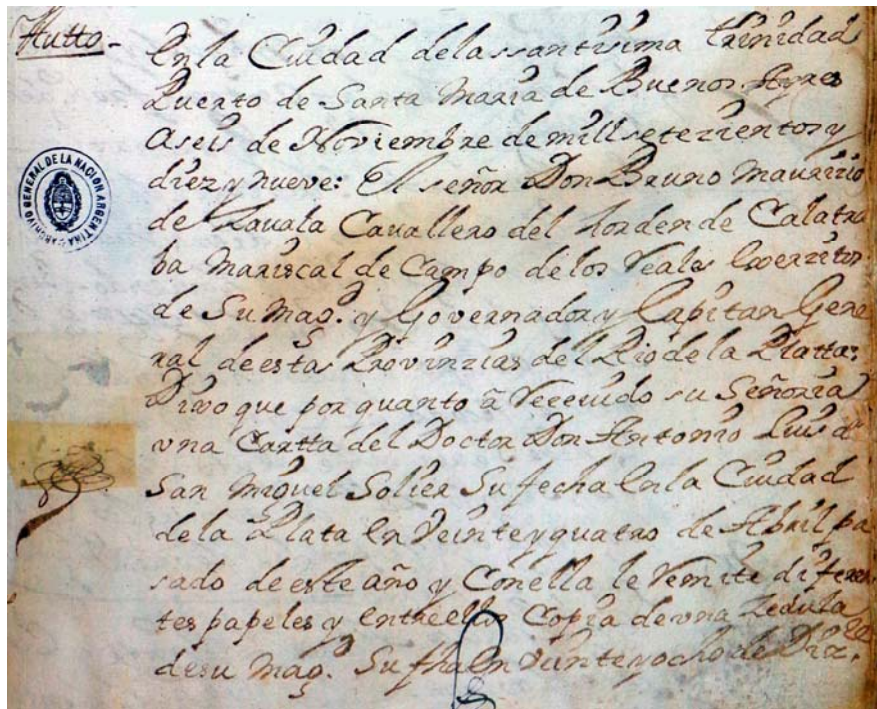 Autto-
En la Ciudad delassantissima trinidad
Puerto de Santa Maria de Buenos Ayres
aseis de Noviembre de mill setezientos y
diez y nueve: El señor Don Bruno Maurizio
de Zavala Cavallero del horden de Calatra
ba Mariscal de Campo de los reales Exerzitos
de Su Mag. y Governador y Capitan Gene
ral deestas Provinzias del Rio de la Platta:
Dixo que por quanto â rrecevido su Señoria
vna Cartta del Doctor Don Antonio Luis de
San Miguel Solier Su fecha en la Ciudad
dela Plata en Veinte y quatro de Abril pa
sado de este año y Conella le remite diferen
tes papeles y entreellos Copia devna Zedula
desu Mag. Su fha en veinte y ocho de
ARCHIVO GENERAL DE LA NACION ARGENTINA